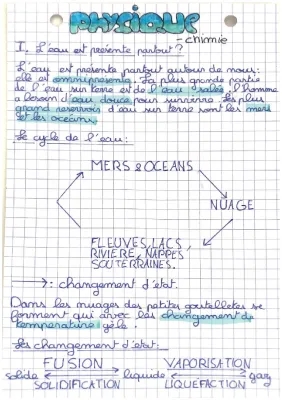 PHYSIQUE
- chimie
I, L'eau est présente partout?
L'eau est présente partout autour de nous:
elle est omniprésente. La plus grande partie
de l'eau sur terre est de l'eau salée, l'homme
a besoin d'eau douce pour survivre. Les plus
grand réservoirs d'eau sur terre sont les mers
et les océans.
Le cycle de l'eau:
MERS & OCEANS
NUAGE
FLEUVES, LACS,
RIVIERE, NAPPES
SOUTERRAINES.
→: changement d'état.
Dans les nuages des petites goutelletes se
forment qui avec les changement de
température gèle.
Les changement d'état:
FUSION VAPORISATION
solide liquide gaz
SOLIDIFICATION LIQUEFACTION